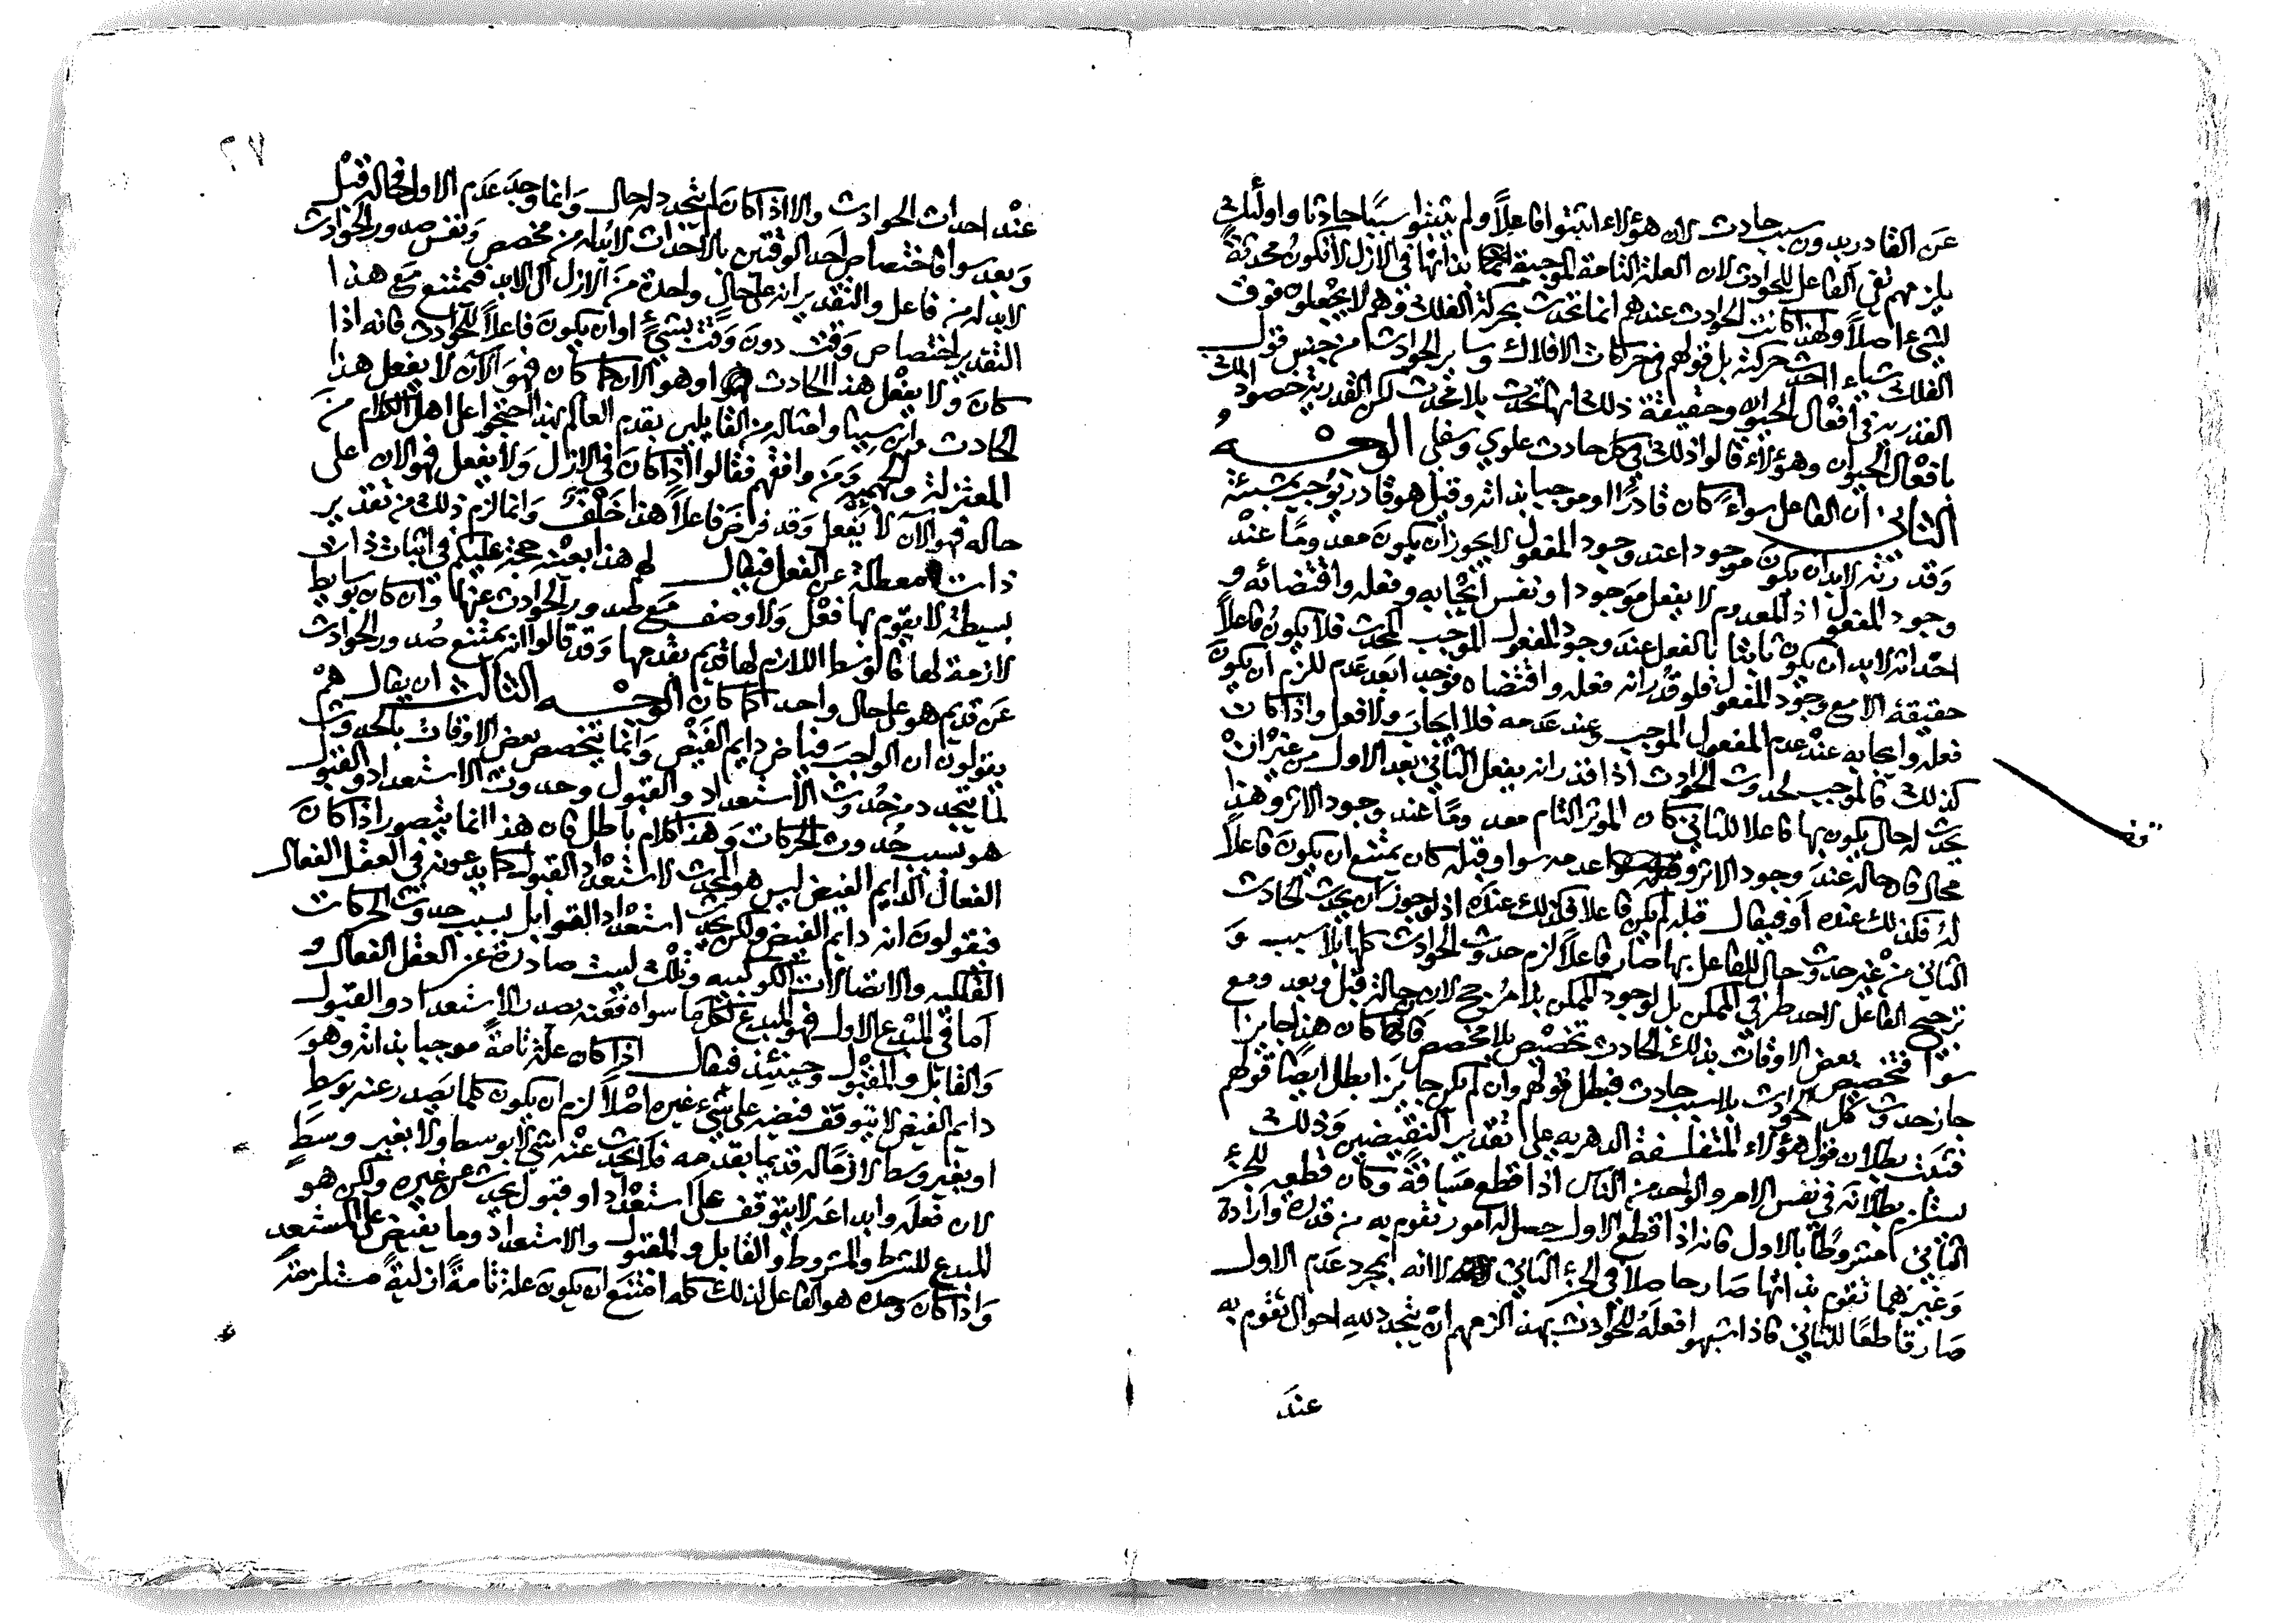 عن القادر بدون سبب حادث لان هؤلاء اثبتوا فاعلاً ولم يثبتوا سببًا حادثا واولئك
يلزمهم نفي الفاعل للحوادث لان العلة التامة الموجبة بذاتها في الازل لا تكون محدثة
لشيء اصلاً ولهذا كانت الحوادث عندهم انما تحدث بحركة الفلك وهم لا يجعلون فوق
الفلك شياء احدث حركته بل قولهم في حركات الافلاك وساير الحوادث من جنس قول
القدرية في افعال الحيوان وحقيقة ذلك انها تحدث بلا محدث لكن القدرية خصوا ذلك
بافعال الحيوان وهؤلاء قالوا ذلك في كل حادث علوي وسفلي الوجه
الثاني ان الفاعل سواء كان قادرًا او موجبا بذاته وقيل هو قادر يوجب بمشيئته
وقدرته لابد ان يكون موجودا عند وجود المفعول لا يجوز ان يكون معدومًا عند
وجود المفعول اذ المعدوم لا يفعل موجودا ونفس ايجابه وفعله واقتضائه و
احداثه لابد ان يكون ثابتا بالفعل عند وجود المفعول الموجب المحدث فلا يكون فاعلاً
حقيقة الا مع وجود المفعول فلو قدر انه فعله واقتضاه فوجد بعد عدم للزم ان يكون
فعله وايجابه عند عدم المفعول الموجب وعند عدمه فلا ايجاب ولا فعل واذا كان
كذلك فالموجب لحدوث الحوادث اذا قدر انه يفعل الثاني بعد الاول من غير ان
يحدث له حال يكون بها فاعلا للثاني كان الموثر التام معدومًا عند وجود الاثر وهذا
محال فان حاله عند وجود الاثر وعدمه سوا وقبله كان يمتنع ان يكون فاعلاً
له فكذلك عنده او فيقال قبله لم يكن فاعلا فكذلك عنده اذ لو جوز ان يحدث الحادث
الثاني من غير حدوث حال للفاعل بها صار فاعلاً لزم حدوث الحوادث كلها بلا سبب و
ترجيح الفاعل لاحد طرفي الممكن بل لوجود الممكن بلا مرجح لان حاله قبل وبعد ومع
سوا فتخصيص بعض الاوقات بذلك الحادث تخصيص بلا مخصص فان كان هذا جايزا
جاز حدوث كل الحوادث بلا سبب حادث فبطل قولهم وان لم يكن جايزا بطل ايضًا قولهم
فثبت بطلان قول هؤلاء المتفلسفة الدهريه على تقدير النقيضين وذلك
يستلزم بطلانه في نفس الامر والواحد من الناس اذا قطع مسافة وكان قطعه للجزء
الثاني مشروطًا بالاول فانه اذا قطع الاول حصل له امور تقوم به من قدرة وارادة
وغيرهما تقوم بذاتها صار حاصلاً في الجزء الثاني لا انه بمجرد عدم الاول
صار قاطعًا للثاني فاذا شبهوا فعله للحوادث بهذا لزمهم ان يتجدد لله احوال تقوم به
عند
٢٧
عند احداث الحوادث والا اذا كان لم يتجدد له حال وانما وجد عدم الاول فحاله قبل
وبعد سوا فاختصاص احد الوقتين بالاحداث لابد له من مخصص ونفس صدور الحوادث
لابد له من فاعل والتقدير انه على حال واحدة من الازل الى الابد فيمتنع مع هذا
التقدير اختصاص وقت دون وقت بشيء او ان يكون فاعلاً للحوادث فانه اذا
كان ولا يفعل هذا الحادث وهو الان كما كان فهو الآن لا يفعل هذا
الحادث وابن سينا وامثاله من القايلين بقدم العالم بهذا احتجوا على اهل الكلام من
المعتزلة والجهمية ومن وافقهم فقالوا اذا كان في الازل ولا يفعل فهو الان على
حاله فهو الآن لا يفعل وقد فرض فاعلاً هذا خلف وانما لزم ذلك من تقدير
ذات معطلة عن الفعل فيقال لهم هذا بعينه حجة عليكم في اثبات ذات
بسيطة لا يقوم بها فعل ولا وصف مع صدور الحوادث عنها وان كان بوسايط
لازمة لها فالوسط اللازم لها قديم بقدمها وقد قالوا انه يمتنع صدور الحوادث
عن قديم هو على حال واحد كما كان الوجه الثالث ان يقال هم
يقولون ان الواجب فياض دايم الفيض وانما يتخصص بعض الاوقات بالحدوث
لما يتجدد من حدوث الاستعداد والقبول وحدوث الاستعداد والقبول
هو بسبب حدوث الحركات وهذا كلام باطل فان هذا انما يتصور اذا كان
الفعال الدايم الفيض ليس هو المحدث لاستعداد القبول كما يدعونه في العقل الفعال
فيقولون انه دايم الفيض ولكن يحدث استعداد القوابل بسبب حدوث الحركات
الفلكيه والاتصالات الكوكبيه وتلك ليست صادرة عن العقل الفعال و
اما في المبدع الاول فهو المبدع لكل ما سواه فعنه يصدر الاستعداد والقبول
والقابل والمقبول وحينئذ فيقال اذا كان علة تامةً موجبا بذاته وهو
دايم الفيض لا يتوقف فيضه على شيء غيره اصلاً لزم ان يكون كلما يصدر عنه بوسط
او بغير وسط لازمًا له قديما بقدمه فلا يحدث عنه شيء لا بوسط ولا بغير وسط
لان فعله وابداعه لا يتوقف على استعداد او قبول يحدث عن غيره ولكن هو
المبدع للشرط والمشروط والقابل والمقبول والاستعداد وما يفيض على المستعد
واذا كان وحده هو الفاعل لذلك كله امتنع ان يكون علة تامةً ازليةً مستلزمة